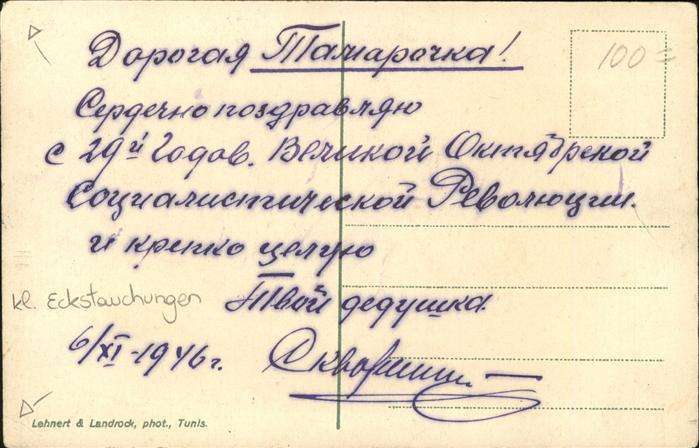 100=
Дорогая Тамарочка!
Сердечно поздравляю
с 29й годов. Великой Октябрской
Социалистической Революции.
и крепко целую
Твой дедушка.
kl. Eckstauchungen
6/XI-1946г.
Lehnert & Landrock, phot., Tunis.